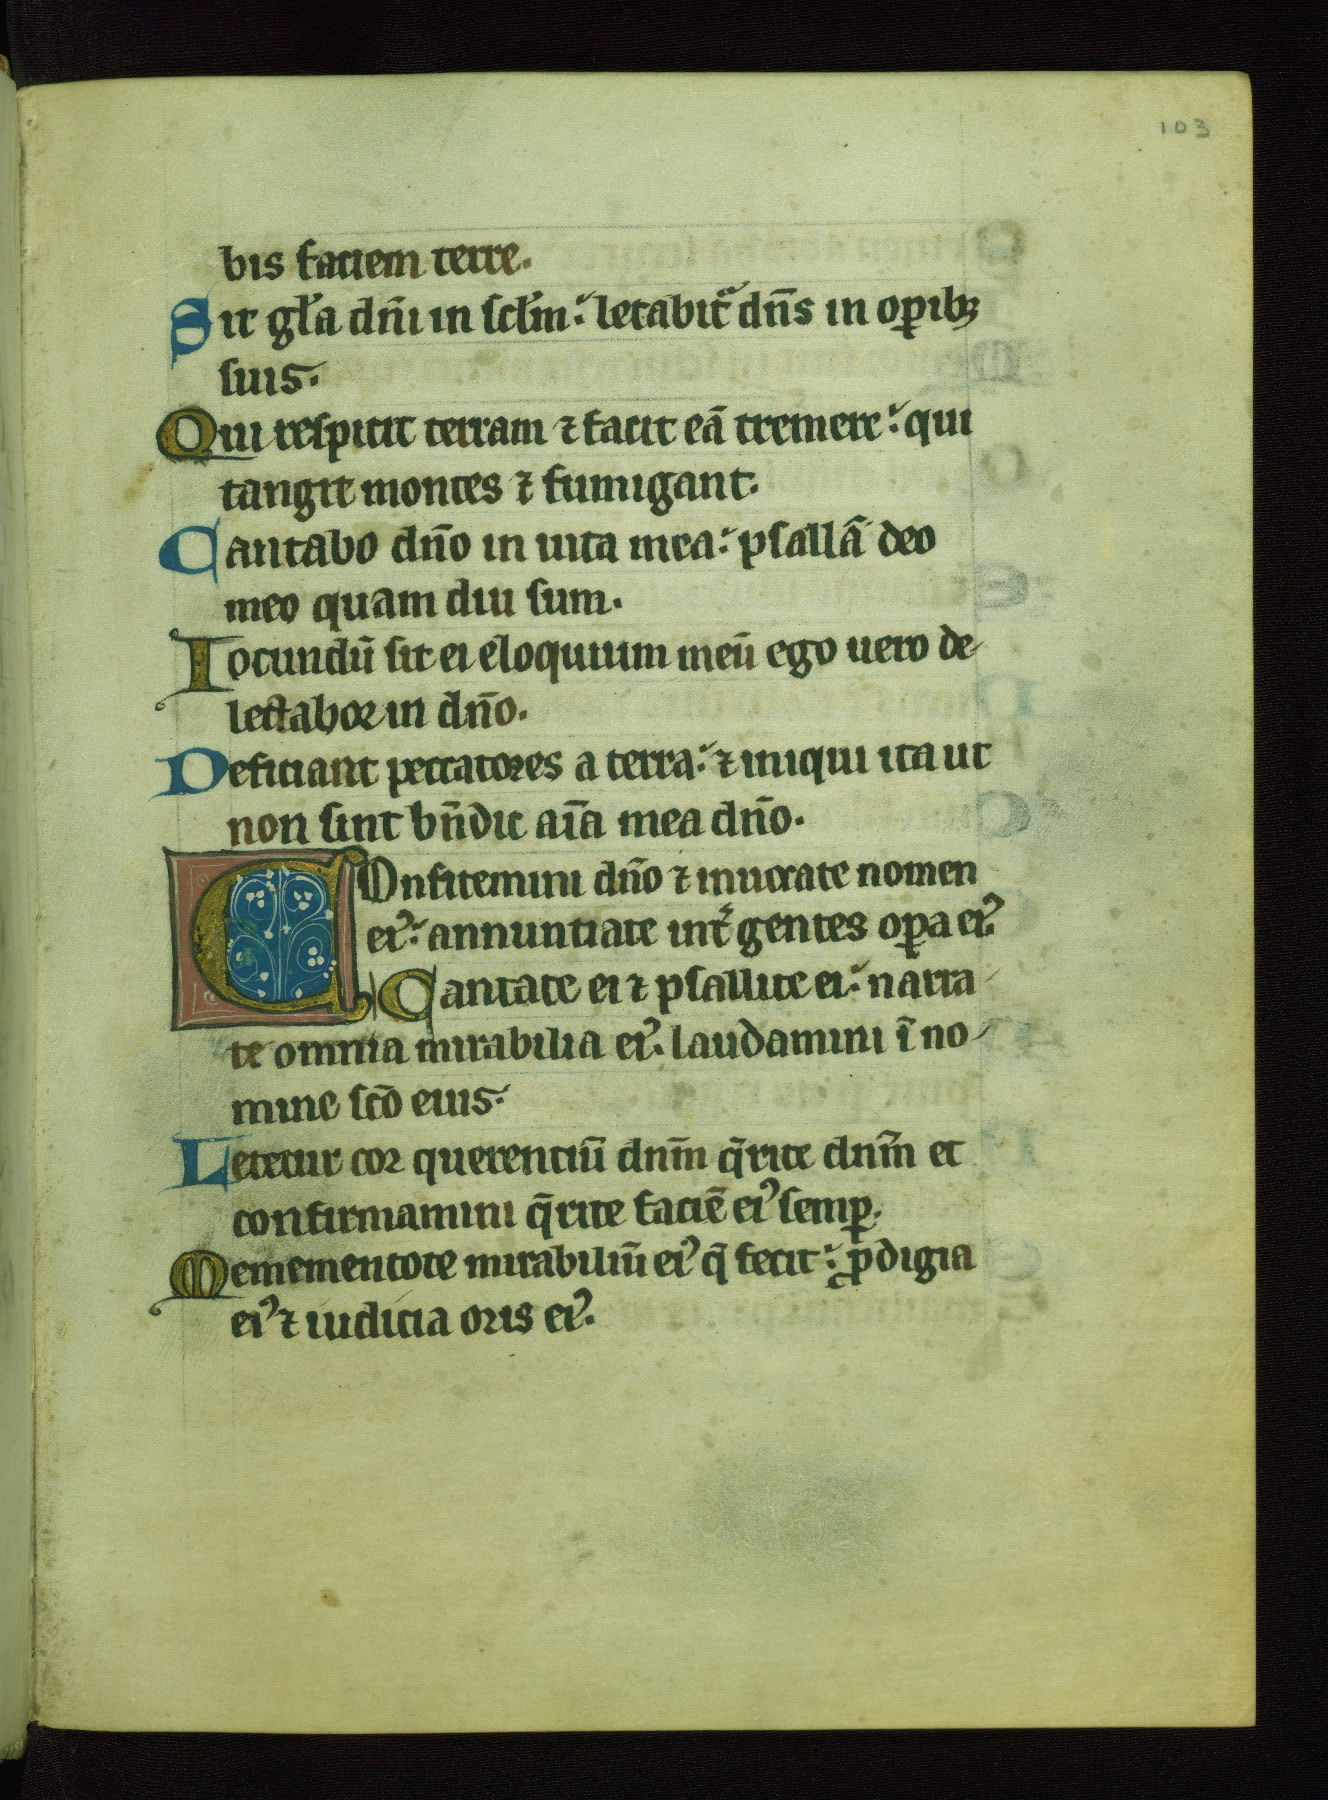 103
bis faciem terre.
Sit gl̄a dn̄i in sc̄lm: letabit᷑ dn̄s in oꝑibꝫ
suis.
Qui respicit terram ⁊ facit eā tremere: qui
tangit montes ⁊ fumigant.
Cantabo dn̄o in uita mea: psallā deo
meo quam diu sum.
Iocundū sit ei eloquium meū ego uero de
lectabor in dn̄o.
Deficiant peccatores a terra: ⁊ iniqui ita ut
non sint bn̄dic aīa mea dn̄o.
COnfitemini dn̄o ⁊ inuocate nomen
eiꝰ: annuntiate int᷑ gentes oꝑa eiꝰ.
Cantate ei ⁊ psallite ei: narra
te omnia mirabilia eiꝰ. laudamini ī no
mine sc̄o eius.
Letetur cor querentiū dnm̄ q̄rite dnm̄ et
confirmamini q̄rite faciē eiꝰ semꝑ.
Mementote mirabiliū eiꝰ q̄ fecit: ꝓdigia
eiꝰ ⁊ iudicia oris eiꝰ.